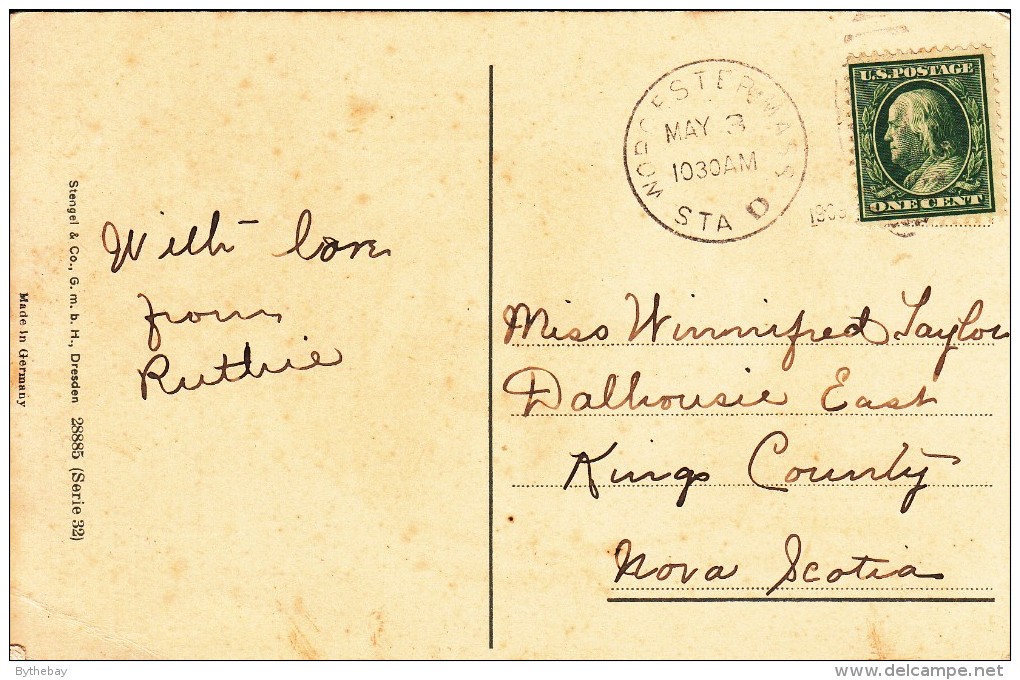 With love
from
Ruthie
Stengel & Co., G. m. b. H., Dresden 28885 (Serie 32)
Made in Germany
WORCESTER MASS
MAY 3
1030AM
STA D
U.S. POSTAGE
ONE CENT
Miss Winnifred Taylor
Dalhousie East
Kings County
Nova Scotia
Bythebay
www.delcampe.net